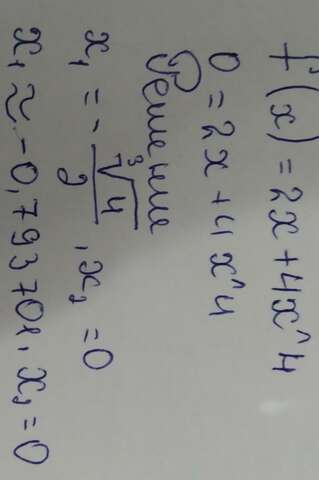 f(x) = 2x + 4x^4
0 = 2x + 4x^4
Решение
x₁ = - ∛4/2, x₂ = 0
x₁ ≈ -0,793701, x₂ = 0